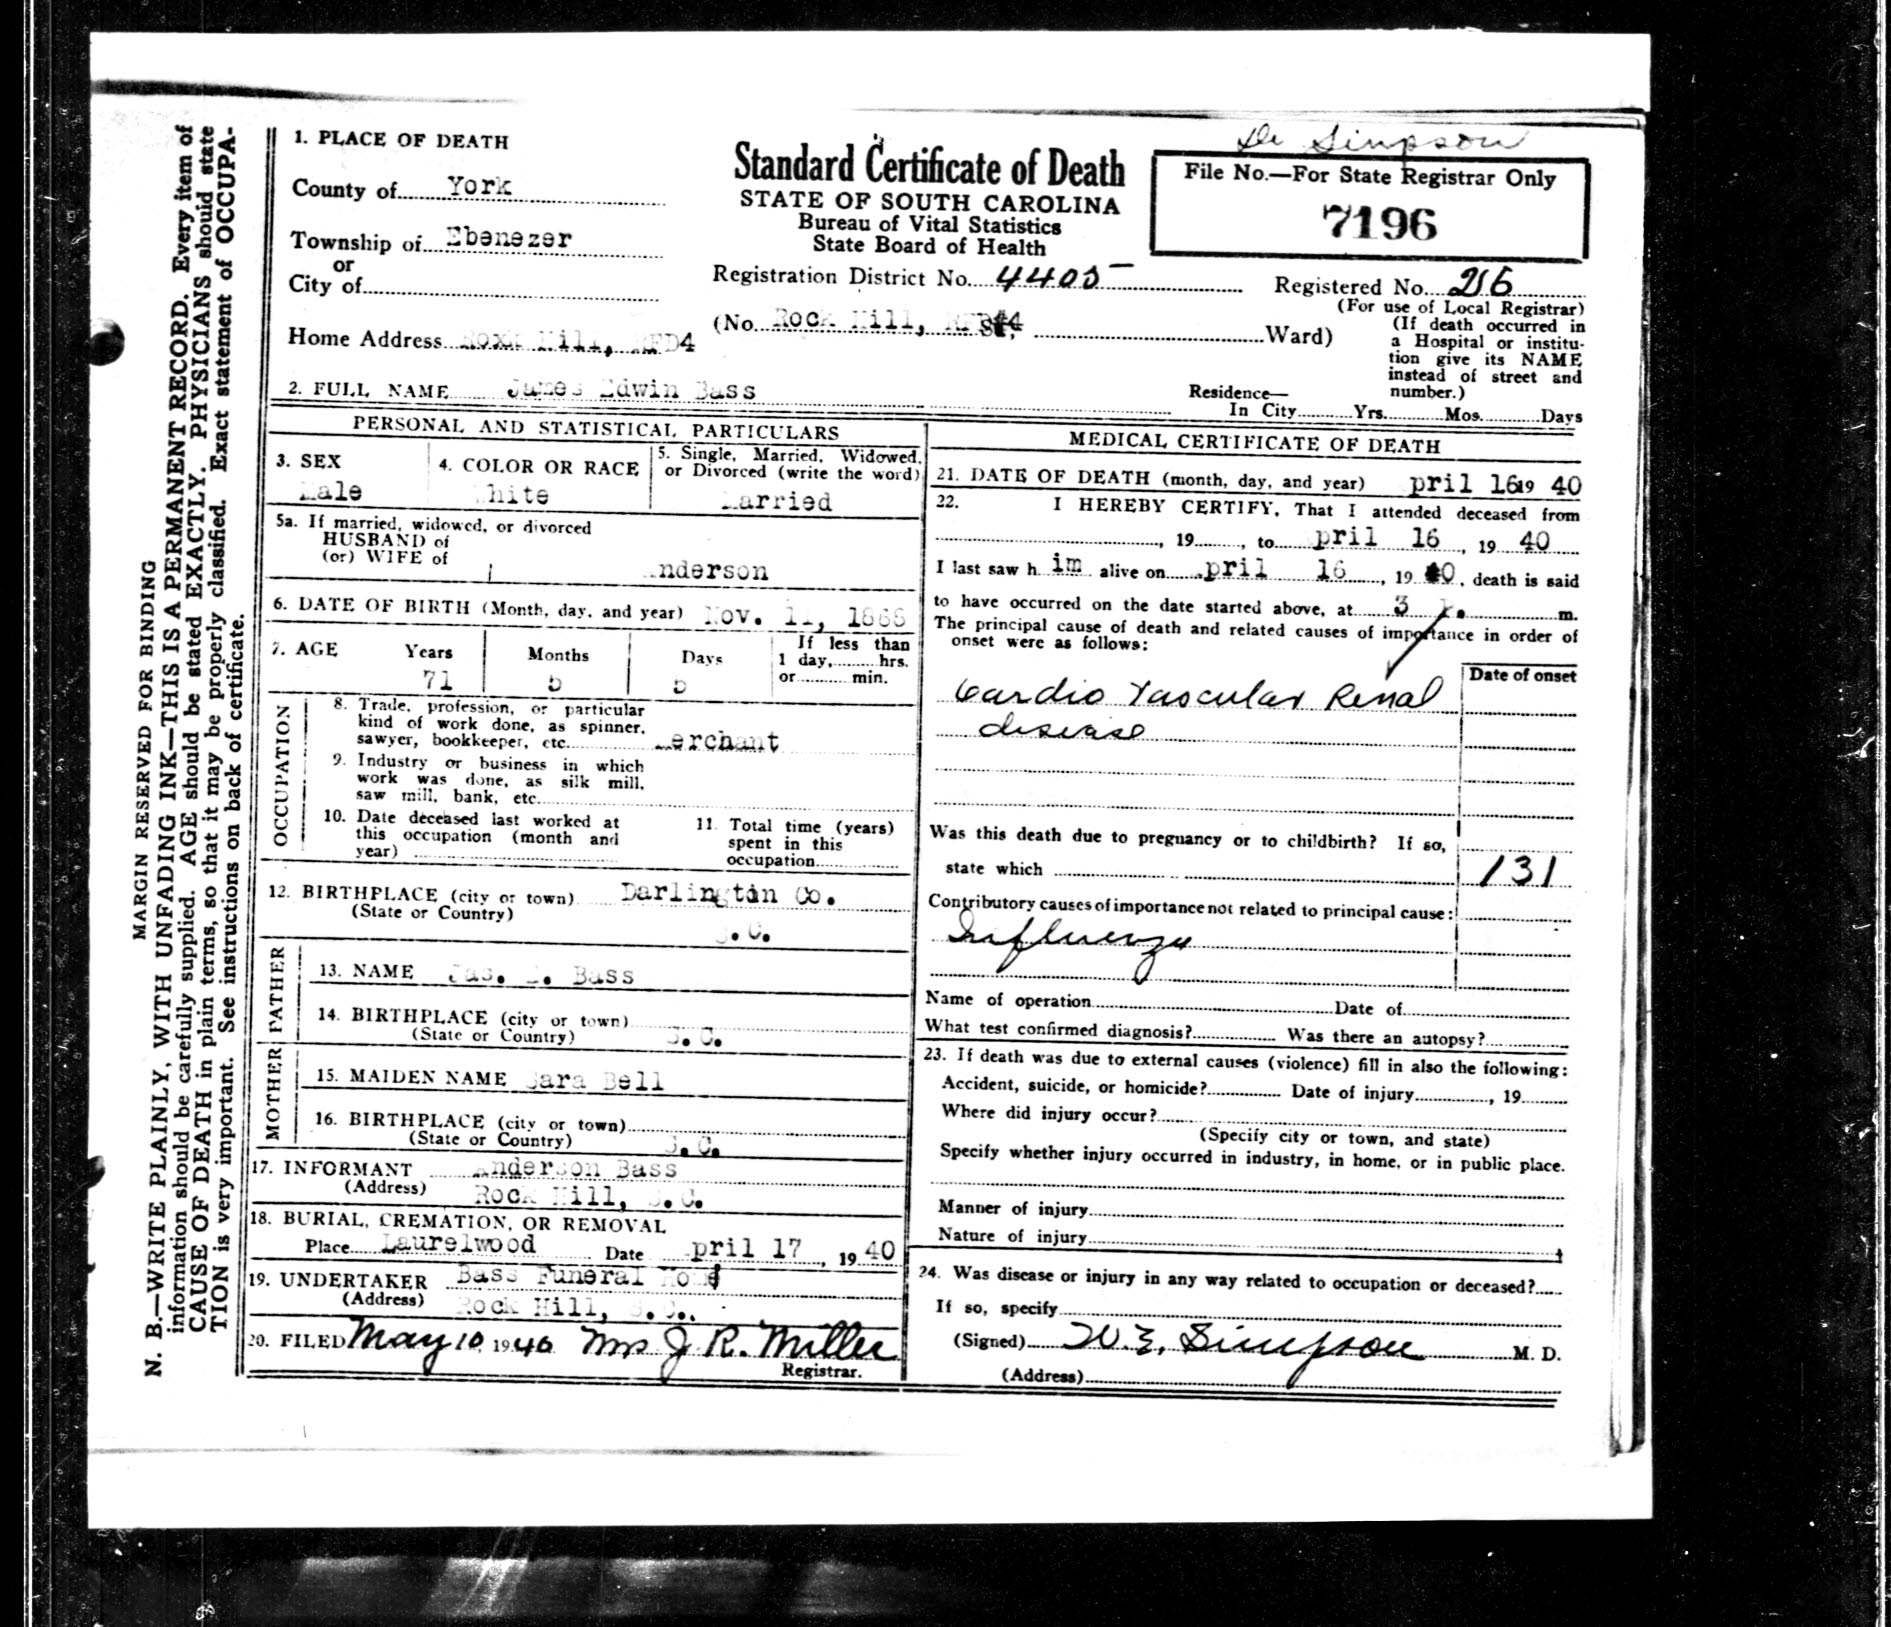 N. B.—WRITE PLAINLY, WITH UNFADING INK—THIS IS A PERMANENT RECORD. Every item of
information should be carefully supplied. AGE should be stated EXACTLY. PHYSICIANS should state
CAUSE OF DEATH in plain terms, so that it may be properly classified. Exact statement of OCCUPA-
TION is very important. See instructions on back of certificate.
MARGIN RESERVED FOR BINDING
1. PLACE OF DEATH
County of York
Township of Ebenezer
or
City of
Home Address Hill, RFD4
Standard Certificate of Death
STATE OF SOUTH CAROLINA
Bureau of Vital Statistics
State Board of Health
Registration District No. 4405
(No. Rock Hill, RFD #4 St, Ward)
Dr Simpson
File No.—For State Registrar Only
7196
Registered No. 216
(For use of Local Registrar)
(If death occurred in
a Hospital or institu-
tion give its NAME
instead of street and
number.)
2. FULL NAME James Edwin Bass
Residence—
In City Yrs. Mos. Days
PERSONAL AND STATISTICAL PARTICULARS
3. SEX
Male
4. COLOR OR RACE
White
5. Single, Married, Widowed,
or Divorced (write the word)
Married
5a. If married, widowed, or divorced
HUSBAND of
(or) WIFE of
Anderson
6. DATE OF BIRTH (Month, day, and year) Nov. 11, 1868
7. AGE
Years
71
Months
5
Days
5
If less than
1 day, hrs.
or min.
OCCUPATION
8. Trade, profession, or particular
kind of work done, as spinner,
sawyer, bookkeeper, etc. Merchant
9. Industry or business in which
work was done, as silk mill,
saw mill, bank, etc.
10. Date deceased last worked at
this occupation (month and
year)
11. Total time (years)
spent in this
occupation
12. BIRTHPLACE (city or town) Darlington Co.
(State or Country) S.C.
FATHER
13. NAME Jas. Bass
14. BIRTHPLACE (city or town)
(State or Country) S.C.
MOTHER
15. MAIDEN NAME Sara Bell
16. BIRTHPLACE (city or town)
(State or Country) S.C.
17. INFORMANT Anderson Bass
(Address) Rock Hill, S.C.
18. BURIAL, CREMATION, OR REMOVAL
Place Laurelwood Date April 17, 1940
19. UNDERTAKER Bass Funeral Home
(Address) Rock Hill, S.C.
20. FILED May 10, 1940 Mrs J. R. Miller
Registrar.
MEDICAL CERTIFICATE OF DEATH
21. DATE OF DEATH (month, day, and year) April 16 19 40
22. I HEREBY CERTIFY, That I attended deceased from
, 19 , to April 16, 19 40
I last saw h im alive on April 16, 19 40, death is said
to have occurred on the date started above, at 3 P. m.
The principal cause of death and related causes of importance in order of
onset were as follows:
Date of onset
Cardio Vascular Renal
disease
Was this death due to pregnancy or to childbirth? If so,
state which
131
Contributory causes of importance not related to principal cause:
Influenza
Name of operation Date of
What test confirmed diagnosis? Was there an autopsy?
23. If death was due to external causes (violence) fill in also the following:
Accident, suicide, or homicide? Date of injury , 19
Where did injury occur?
(Specify city or town, and state)
Specify whether injury occurred in industry, in home, or in public place.
Manner of injury
Nature of injury
24. Was disease or injury in any way related to occupation or deceased?
If so, specify
(Signed) W. E. Simpson M. D.
(Address)